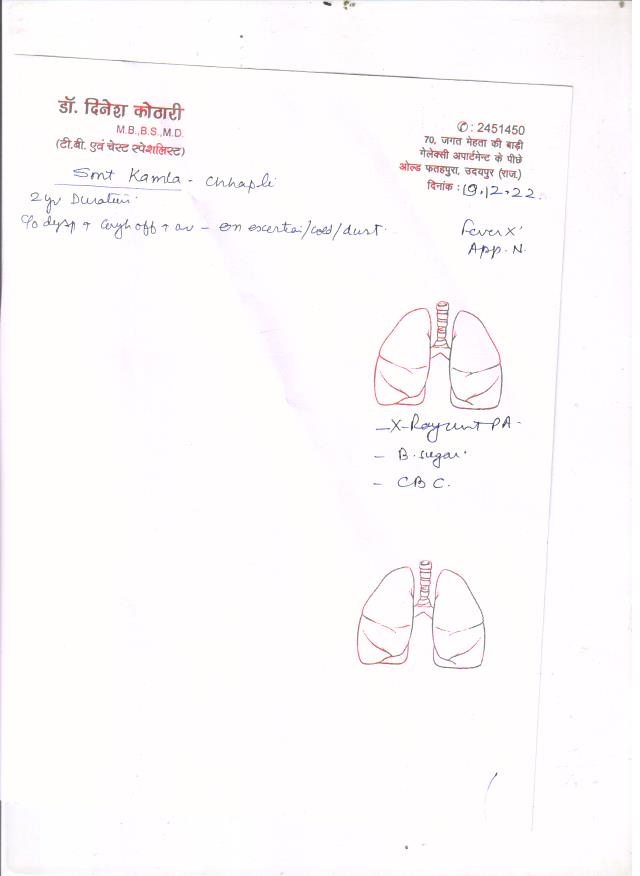 डॉ. दिनेश कोठारी
M.B.,B.S.,M.D.
(टी.बी. एवं चेस्ट स्पेशलिस्ट)
✆ : 2451450
70, जगत मेहता की बाड़ी
गेलेक्सी अपार्टमेन्ट के पीछे
ओल्ड फतहपुरा, उदयपुर (राज.)
दिनांक : 19.12.22.
Smt Kamla - Chhapli
2 yr Duration
C/o dysp + Cough off + on - on / cold / dust
Fever X
App. N.
- X-Ray PA -
- B. sugar
- CBC.